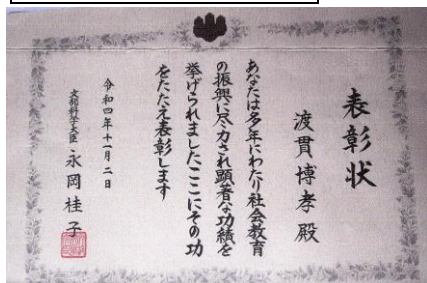 表彰状
渡貫博孝殿
あなたは多年にわたり社会教育
の振興に尽力され顕著な功績を
挙げられましたここにその功
をたたえ表彰します
令和四年十一月二日
文部科学大臣 永岡桂子